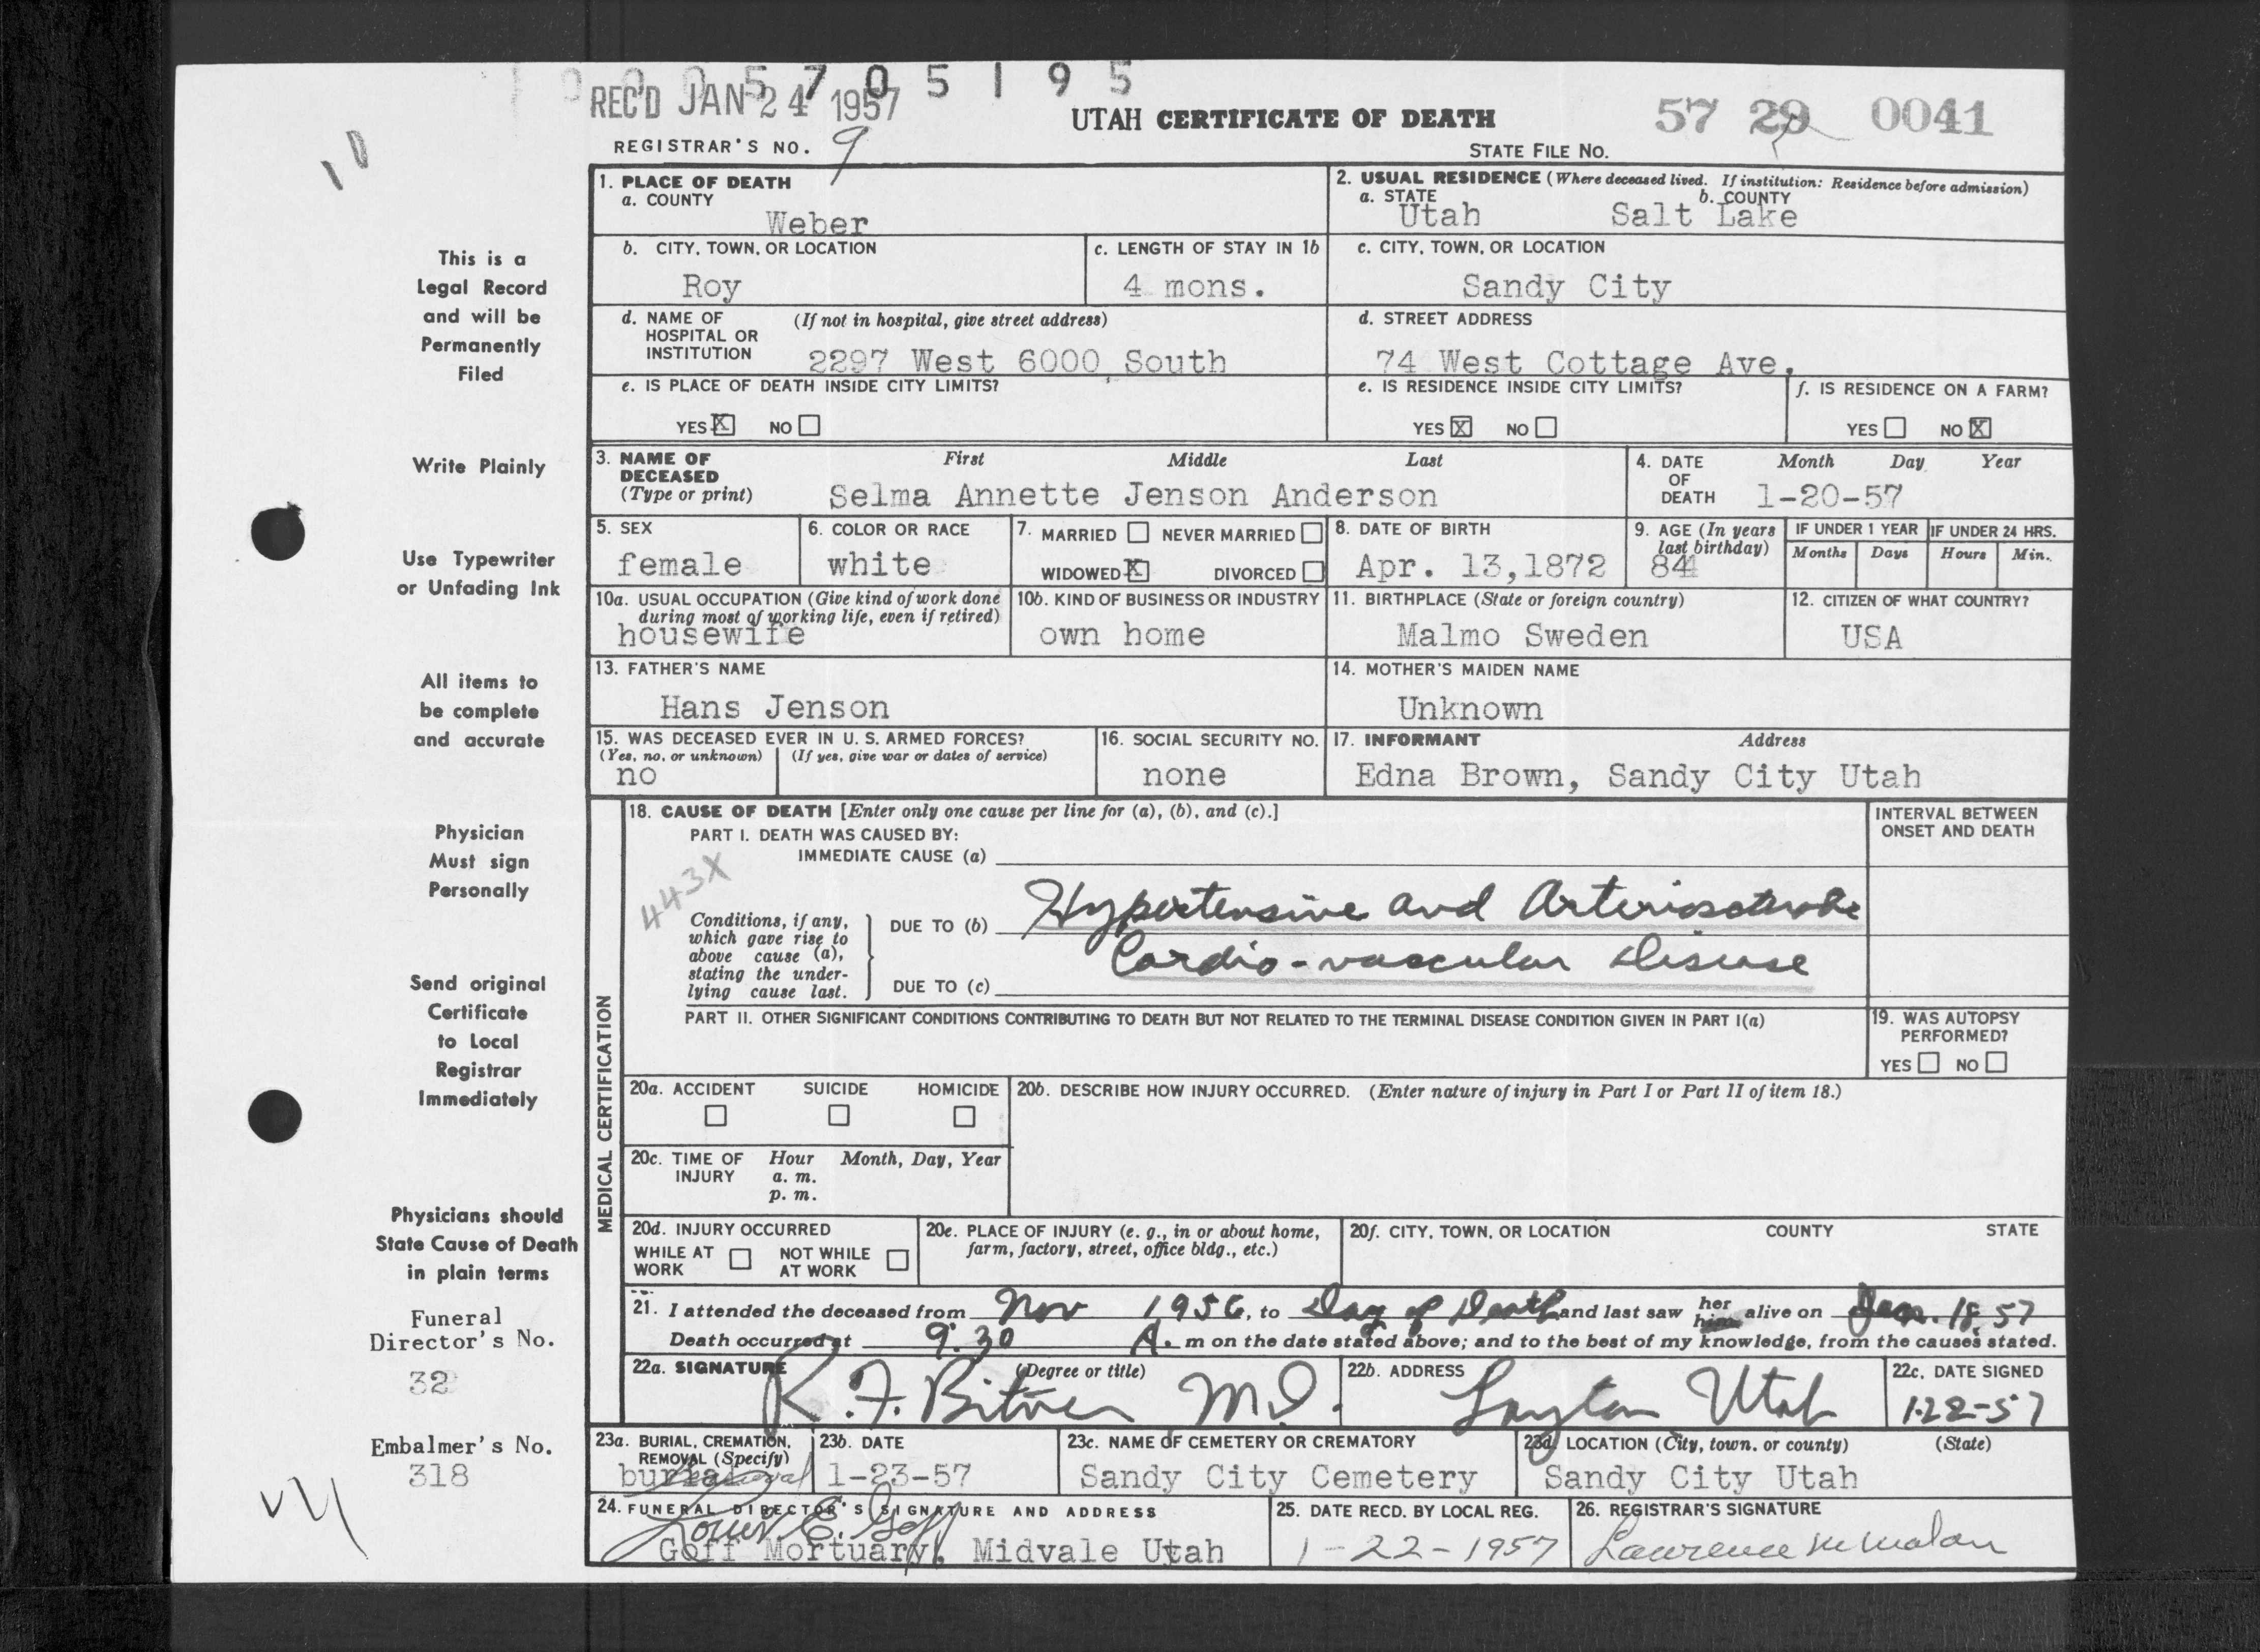 1 0 0 0 5 7 0 5 1 9 5
REC'D JAN 24 1957
UTAH CERTIFICATE OF DEATH
57 29 0041
REGISTRAR'S NO. 9
STATE FILE NO.
1. PLACE OF DEATH
a. COUNTY
Weber
2. USUAL RESIDENCE (Where deceased lived. If institution: Residence before admission)
a. STATE b. COUNTY
Utah Salt Lake
This is a
Legal Record
and will be
Permanently
Filed
b. CITY, TOWN, OR LOCATION
Roy
c. LENGTH OF STAY IN 1b
4 mons.
c. CITY, TOWN, OR LOCATION
Sandy City
d. NAME OF (If not in hospital, give street address)
HOSPITAL OR
INSTITUTION 2297 West 6000 South
d. STREET ADDRESS
74 West Cottage Ave.
e. IS PLACE OF DEATH INSIDE CITY LIMITS?
YES X NO
e. IS RESIDENCE INSIDE CITY LIMITS?
YES X NO
f. IS RESIDENCE ON A FARM?
YES NO X
Write Plainly
3. NAME OF First Middle Last
DECEASED
(Type or print) Selma Annette Jenson Anderson
4. DATE Month Day Year
OF
DEATH 1-20-57
Use Typewriter
or Unfading Ink
5. SEX
female
6. COLOR OR RACE
white
7. MARRIED NEVER MARRIED
WIDOWED X DIVORCED
8. DATE OF BIRTH
Apr. 13,1872
9. AGE (In years
last birthday)
84
IF UNDER 1 YEAR
Months Days
IF UNDER 24 HRS.
Hours Min.
10a. USUAL OCCUPATION (Give kind of work done
during most of working life, even if retired)
housewife
10b. KIND OF BUSINESS OR INDUSTRY
own home
11. BIRTHPLACE (State or foreign country)
Malmo Sweden
12. CITIZEN OF WHAT COUNTRY?
USA
All items to
be complete
and accurate
13. FATHER'S NAME
Hans Jenson
14. MOTHER'S MAIDEN NAME
Unknown
15. WAS DECEASED EVER IN U. S. ARMED FORCES?
(Yes, no, or unknown) (If yes, give war or dates of service)
no
16. SOCIAL SECURITY NO.
none
17. INFORMANT Address
Edna Brown, Sandy City Utah
Physician
Must sign
Personally
MEDICAL CERTIFICATION
18. CAUSE OF DEATH [Enter only one cause per line for (a), (b), and (c).]
PART I. DEATH WAS CAUSED BY:
IMMEDIATE CAUSE (a)
INTERVAL BETWEEN
ONSET AND DEATH
443X
Conditions, if any,
which gave rise to
above cause (a),
stating the under-
lying cause last.
DUE TO (b) Hypertensive and Arteriosclerotic
Cardio-vascular Disease
DUE TO (c)
Send original
Certificate
to Local
Registrar
Immediately
PART II. OTHER SIGNIFICANT CONDITIONS CONTRIBUTING TO DEATH BUT NOT RELATED TO THE TERMINAL DISEASE CONDITION GIVEN IN PART I(a)
19. WAS AUTOPSY
PERFORMED?
YES NO
20a. ACCIDENT SUICIDE HOMICIDE
20b. DESCRIBE HOW INJURY OCCURRED. (Enter nature of injury in Part I or Part II of item 18.)
20c. TIME OF Hour Month, Day, Year
INJURY a. m.
p. m.
Physicians should
State Cause of Death
in plain terms
20d. INJURY OCCURRED
WHILE AT NOT WHILE
WORK AT WORK
20e. PLACE OF INJURY (e. g., in or about home,
farm, factory, street, office bldg., etc.)
20f. CITY, TOWN, OR LOCATION COUNTY STATE
21. I attended the deceased from Nov 1956, to Day of Death and last saw her him alive on Jan. 18, 57
Death occurred at 9:30 A. m on the date stated above; and to the best of my knowledge, from the causes stated.
Funeral
Director's No.
32
22a. SIGNATURE (Degree or title)
R. F. Bitner M.D.
22b. ADDRESS
Layton Utah
22c. DATE SIGNED
1-22-57
Embalmer's No.
318
23a. BURIAL, CREMATION,
REMOVAL (Specify)
burial Removal
23b. DATE
1-23-57
23c. NAME OF CEMETERY OR CREMATORY
Sandy City Cemetery
23d. LOCATION (City, town, or county) (State)
Sandy City Utah
24. FUNERAL DIRECTOR'S SIGNATURE AND ADDRESS
Louis E. Goff
Goff Mortuary, Midvale Utah
25. DATE RECD. BY LOCAL REG.
1-22-1957
26. REGISTRAR'S SIGNATURE
Lawrence M Malan